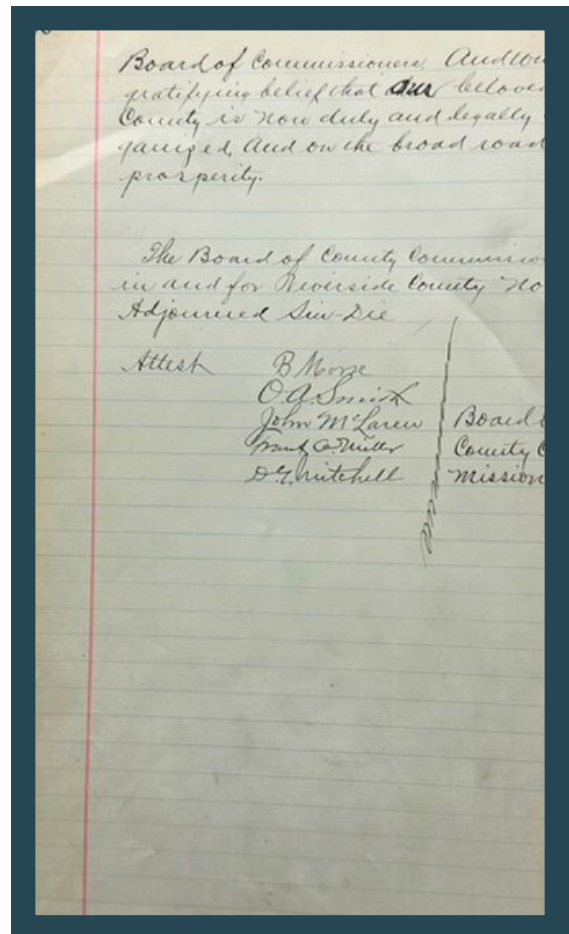 Board of Commissioners, And
gratifying belief that our beloved
County is now duly and legally
ganized, And on the broad road
prosperity.
The Board of County Commissio
in and for Riverside County No
Adjourned Sin-Die
Attest B Morse
O.A. Smith
John McLaren Board
Frank A. Miller County C
D.G. Mitchell Mission